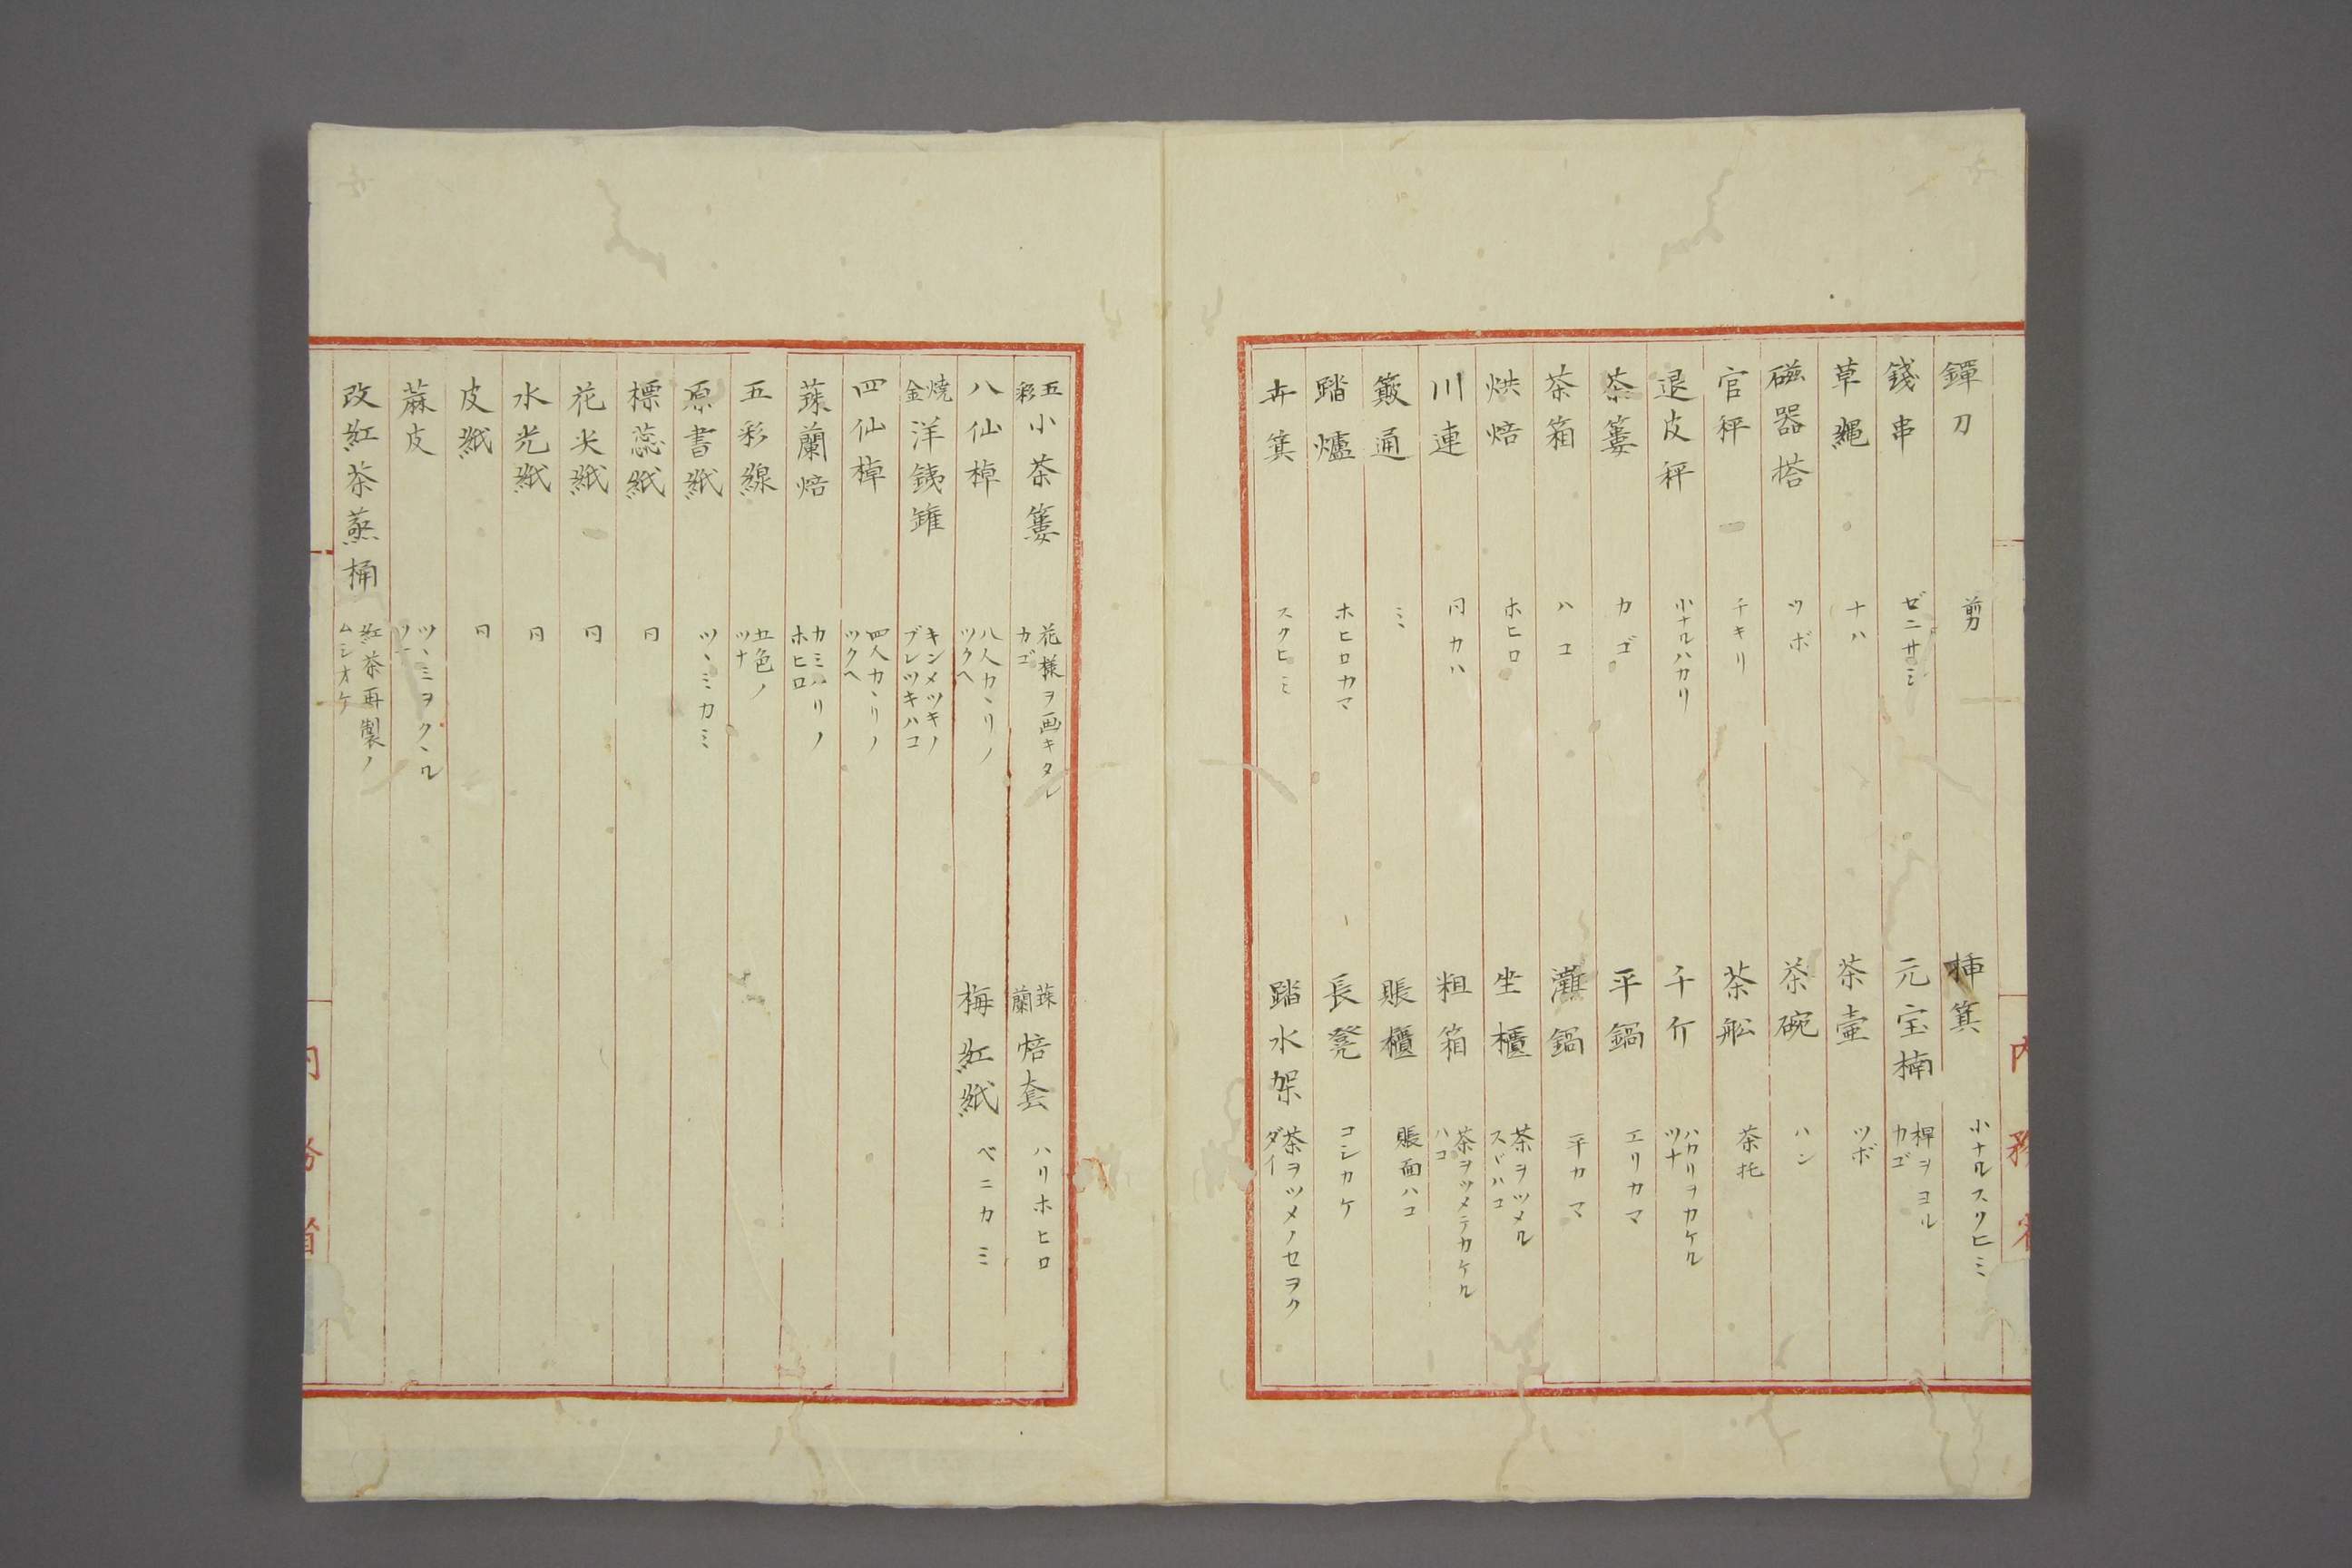 鐔刀 剪刀 挿箕 小ナルスクヒミ
錢串 ゼニサシ 元宝楠 桿ヲヨル カゴ
草繩 ナハ 茶壷 ツボ
磁器搭 ツボ 茶碗 ハン
官秤 チキリ 茶舩 茶托
退皮秤 小ナルハカリ 千斤 ハカリヲカケル ツナ
茶簍 カゴ 平鍋 エリカマ
茶箱 ハコ 灘鍋 平カマ
烘焙 ホヒロ 坐櫃 茶ヲツメル スヾハコ
川連 同カハ 粗箱 茶ヲツメテカケル ハコ
簸通 ミ 賬櫃 賬面ハコ
踏爐 ホヒロカマ 長凳 コシカケ
卉箕 スクヒミ 踏水架 茶ヲツメノセヲク ダイ
五彩 小茶簍 花様ヲ画キタル カゴ 蔴蘭 焙套 ハリホヒロ
八仙棹 八人カヽリノ ツクヘ 梅紅紙 ベニカミ
焼金 洋銕罐 キンメツキノ ブレツキハコ
四仙棹 四人カヽリノ ツクヘ
蔴蘭焙 カミハリノ ホヒロ
五彩線 五色ノ ツナ
原書紙 ツヽミカミ
標蕊紙 同
花尖紙 同
水光紙 同
皮紙 同
蔴皮 ツヽミヲクヽル
改紅茶蒸桶 紅茶再製ノ ムシオケ
内務省